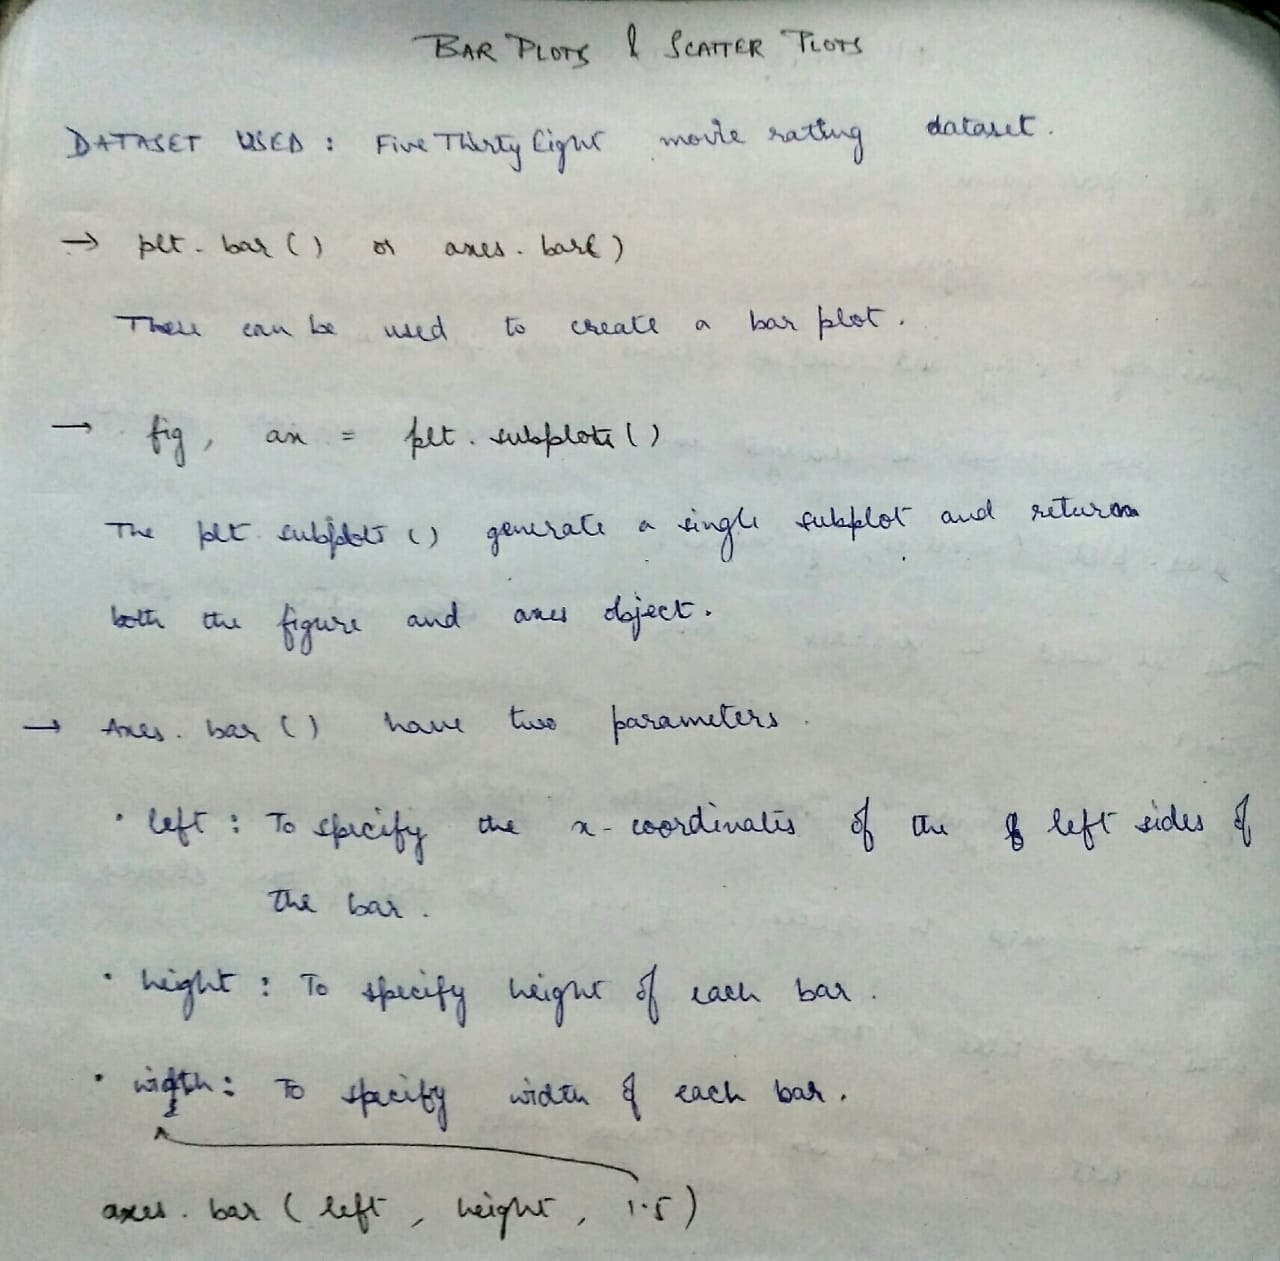 BAR PLOTS & SCATTER PLOTS
DATASET USED : FiveThirtyEight movie rating dataset.
→ plt.bar() or axes.bar()
These can be used to create a bar plot.
→ fig, ax = plt.subplots()
The plt.subplots() generate a single subplot and return
both the figure and axes object.
→ Axes.bar() have two parameters.
• left : To specify the x-coordinates of the left sides of
the bar.
• height : To specify height of each bar.
• width : To specify width of each bar.
axes.bar(left, height, 1.5)